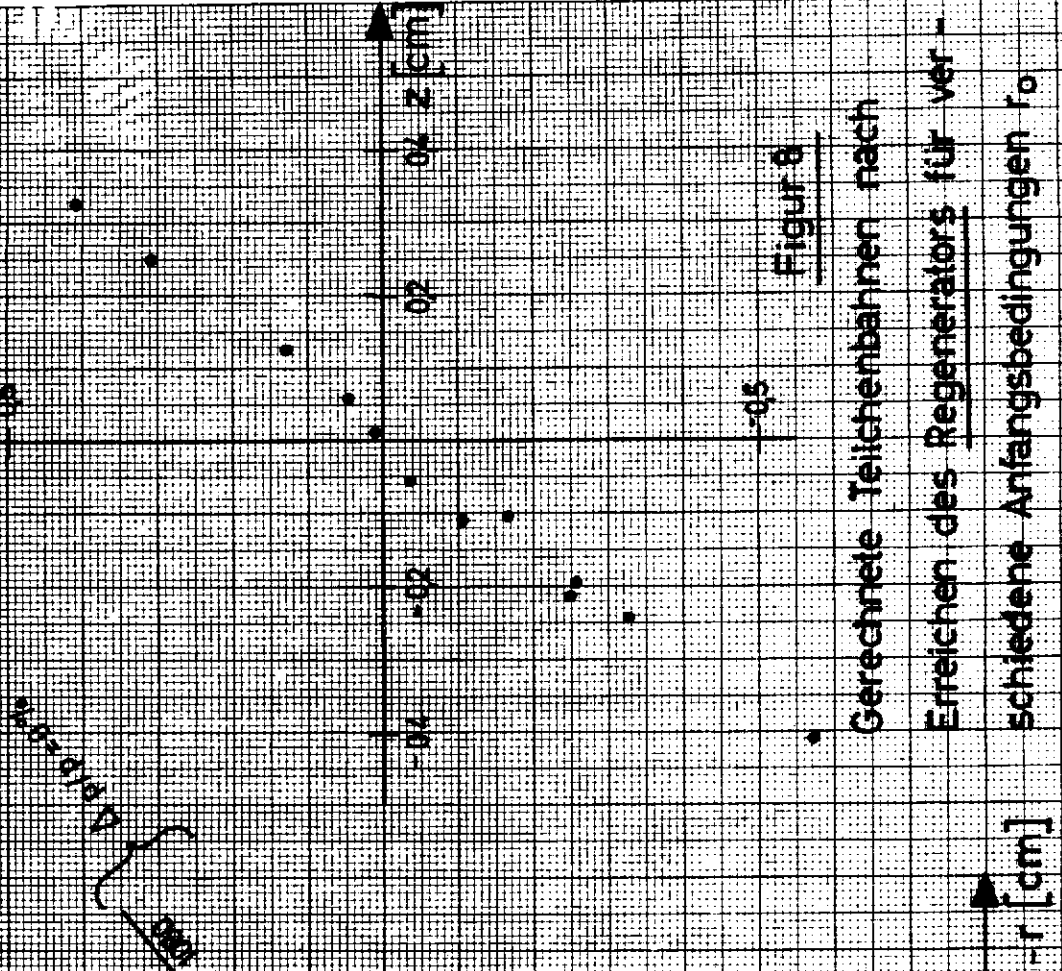 z [cm]
0,4
0,2
-0,2
-0,4
-0,5
Δ p/p = 0 %
Figur 8
Gerechnete Teilchenbahnen nach
Erreichen des Regenerators für ver -
schiedene Anfangsbedingungen r₀
-r [cm]